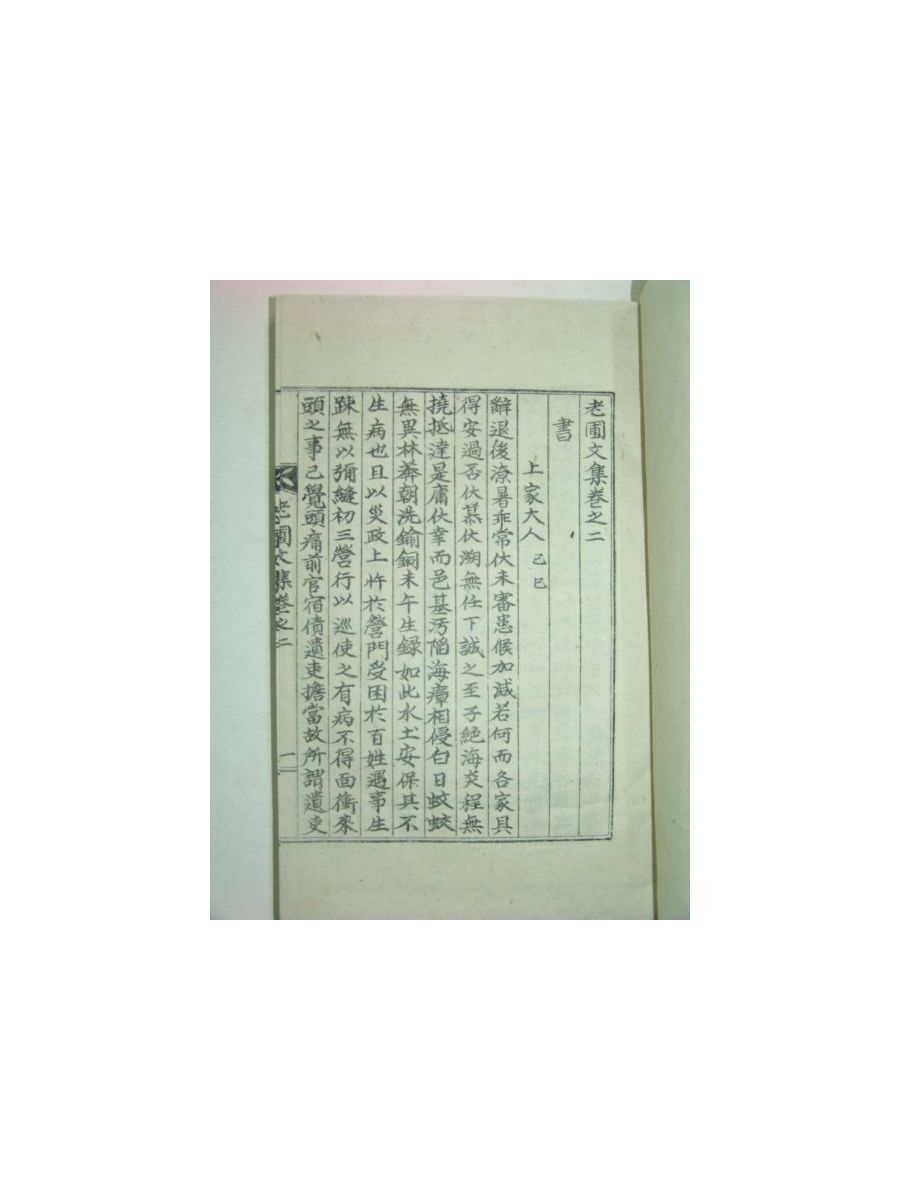 老圃文集卷之二
書
上家大人 己巳
辭退後潦暑乖常伏未審患候加減若何而各家具
得安過否伏慕伏溯無任下誠之至子絕海炎程無
撓抵達是庸伏幸而邑基汚陷海瘴相侵白日蚊蛟
無異林莽朝洗鍮銅未午生録如此水土安保其不
生病也且以災政上忤於營門受困於百姓遇事生
踈無以彌縫初三營行以巡使之有病不得面衝來
頭之事已覺頭痛前官宿債遺吏擔當故所謂遺吏
老圃文集卷之二 一